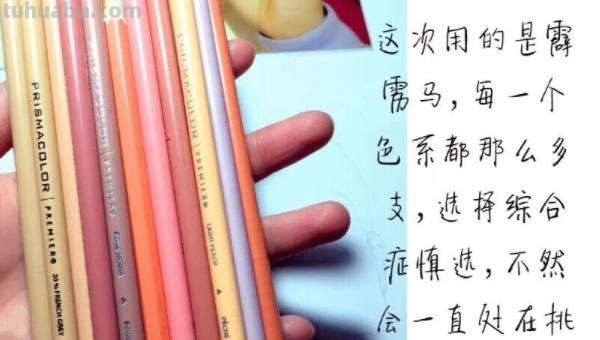 tuhuaba.com
PRISMACOLOR | PREMIER® 20% FRENCH GREY
PRISMACOLOR | PREMIER®
PRISMACOLOR | PREMIER® LIGHT PEACH PÊCHE
这次用的是霹
雳马，每一个
色系都那么多
支，选择综合
症慎选，不然
会一直处在挑